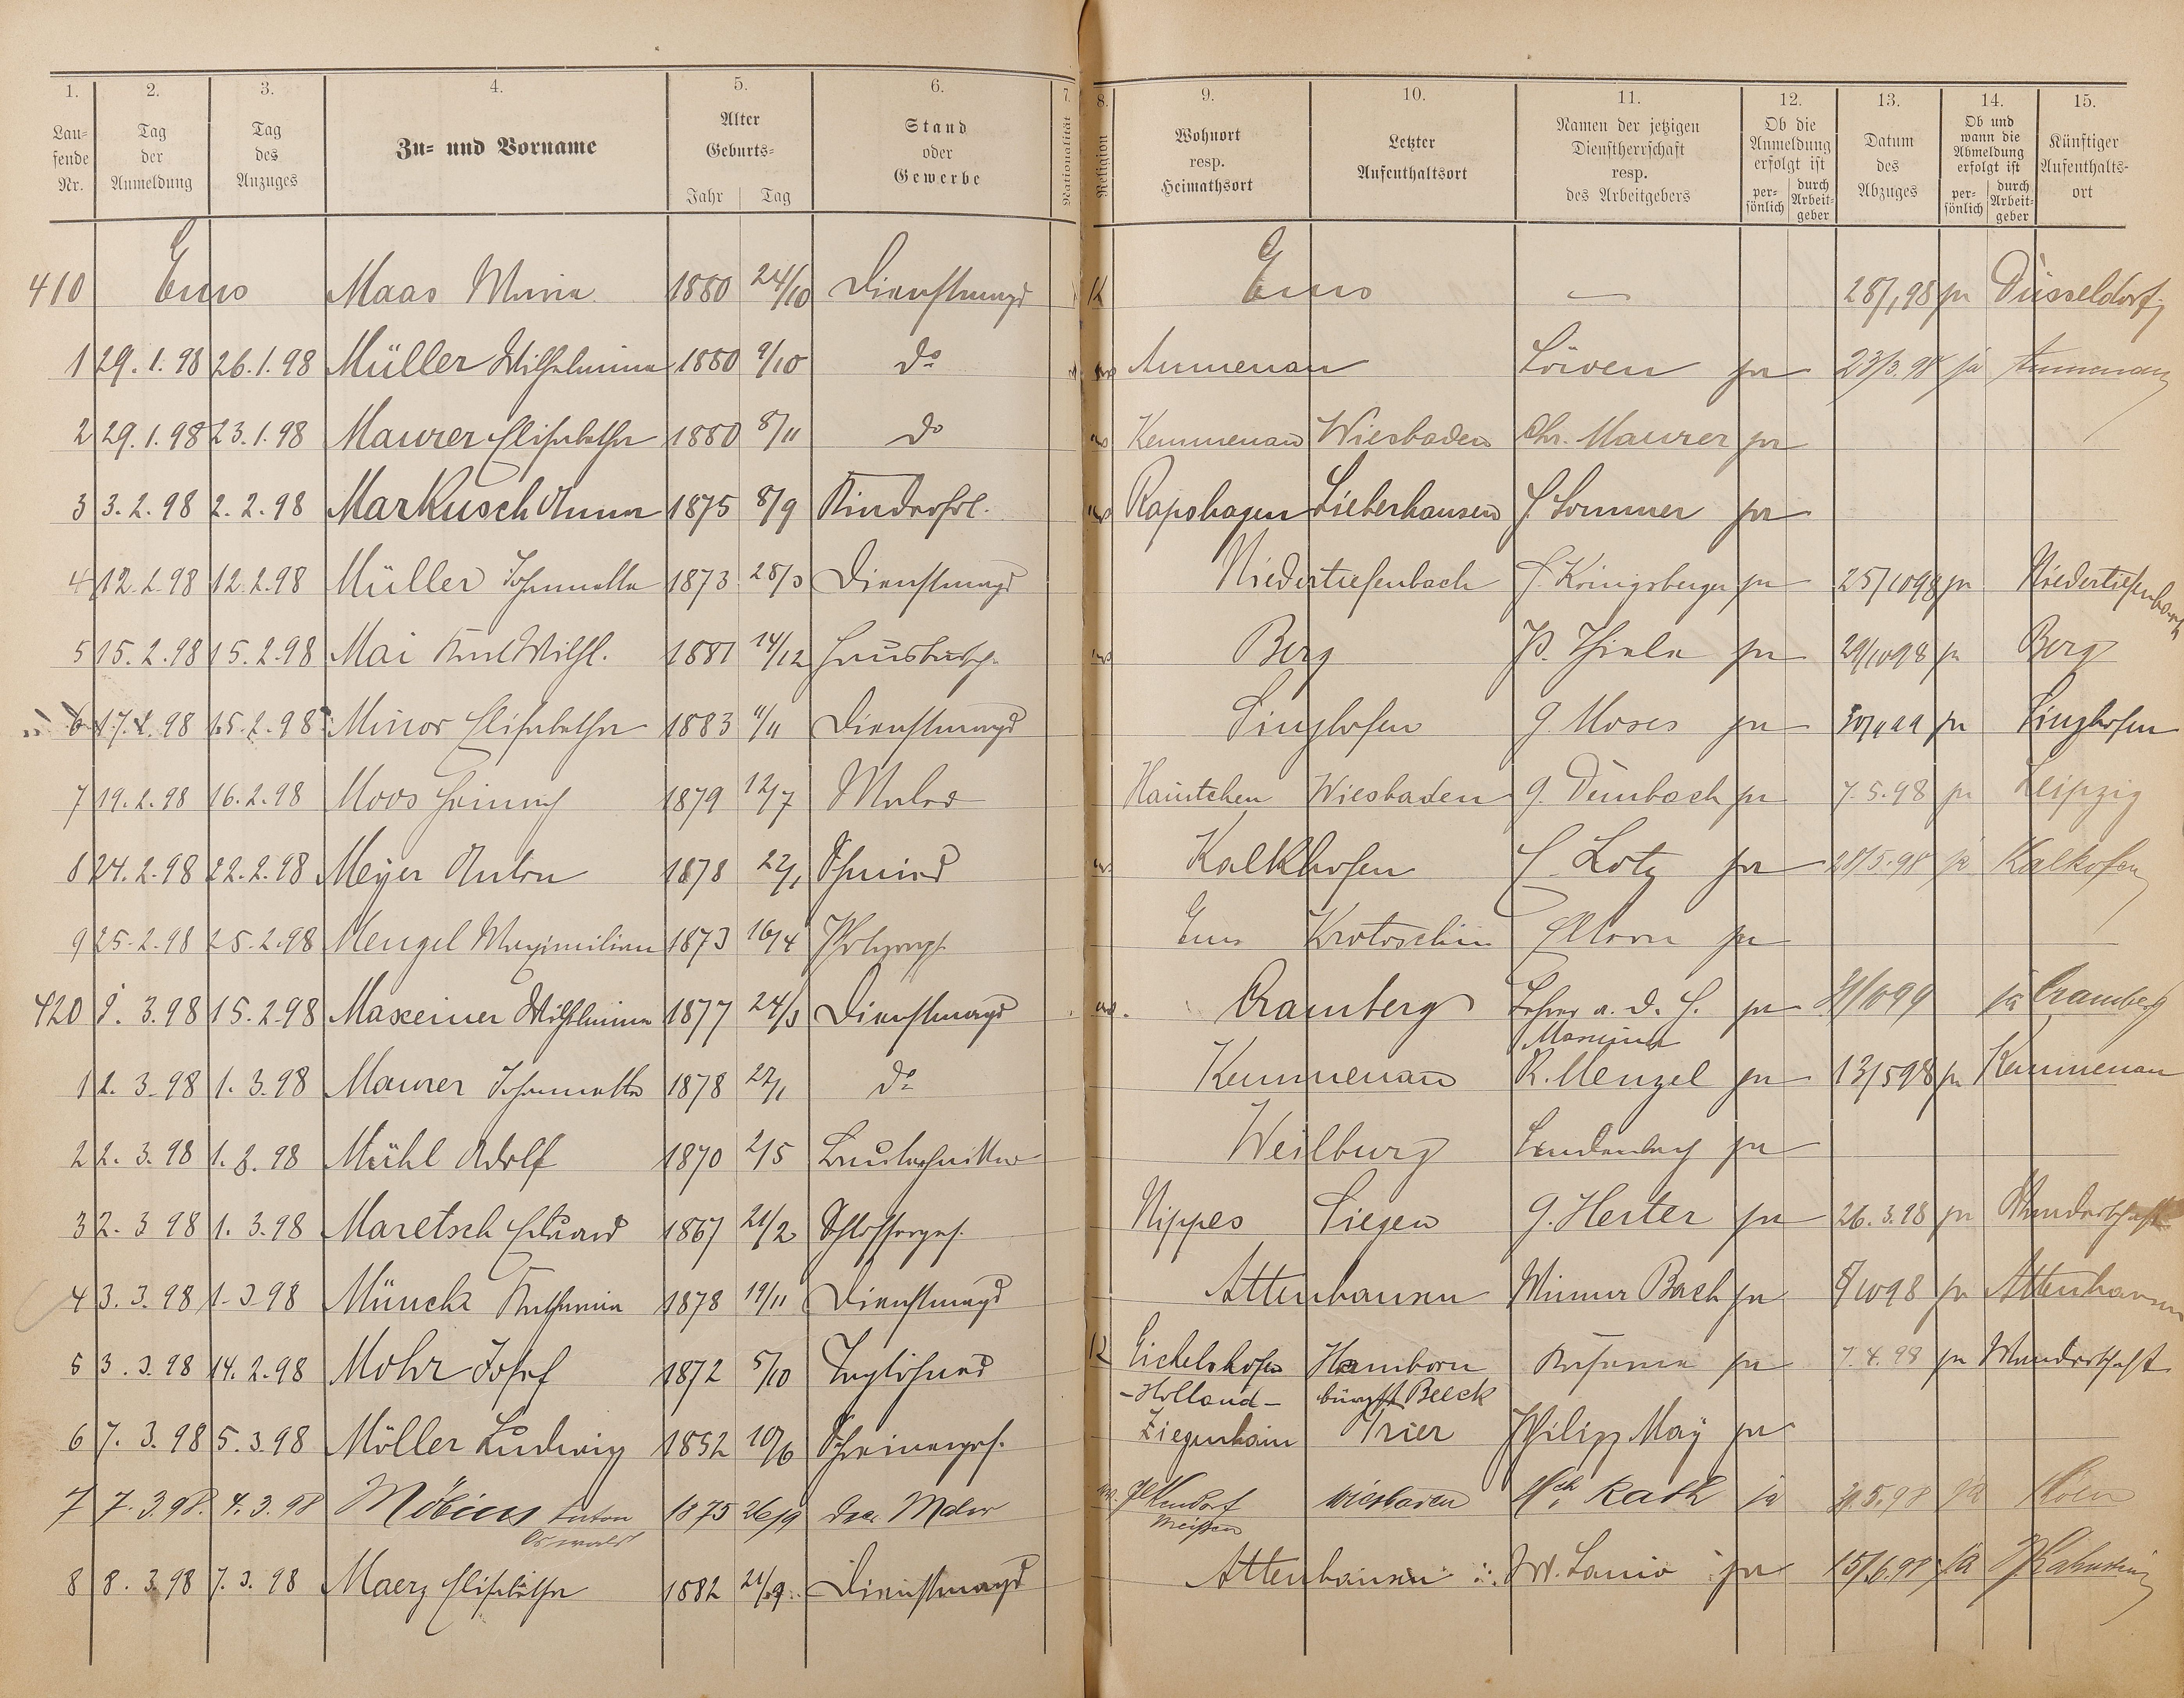 1. 2. 3. 4. 5. 6. 7. 8. 9. 10. 11. 12. 13. 14. 15.
Laufende Nr. Tag der Anmeldung Tag des Anzuges Zu- und Vorname Alter Geburts- Jahr Tag Stand oder Gewerbe Nationalität Religion Wohnort resp. Heimathsort Letzter Aufenthaltsort Namen der jetzigen Dienstherrschaft resp. des Arbeitgebers Ob die Anmeldung erfolgt ist persönlich durch Arbeitgeber Datum des Abzuges Ob und wann die Abmeldung erfolgt ist persönlich durch Arbeitgeber Künftiger Aufenthaltsort
410 Ems Maas Maria 1880 24/10 Dienstmagd Ems — 28/1 98 ja Düsseldorf
1 29.1.98 26.1.98 Müller Wilhelmine 1880 9/10 do Aumenau Löwen ja 23/3.98 ja Aumenau
2 29.1.98 23.1.98 Maurer Elisabetha 1880 8/11 do Kemmenau Wiesbaden Chr. Maurer ja
3 3.2.98 2.2.98 Markusch Anna 1875 8/9 Kinderfrl. Rapshagen Lieberhausen H. Sommer ja
4 12.2.98 12.2.98 Müller Johannette 1873 28/3 Dienstmagd Niedertiefenbach H. Königsberger ja 25/10 98 ja Niedertiefenbach
5 15.2.98 15.2.98 Mai Karl Wilh. 1881 14/12 Hausbursch. Berg P. Thiele ja 29/10 98 ja Berg
6 17.2.98 15.2.98 Minor Elisabetha 1883 11/11 Dienstmagd Singhofen G. Moses ja ja Singhofen
7 19.2.98 16.2.98 Moos Heinrich 1879 12/7 Maler Wiesbaden G. Dünbach ja 7.5.98 ja Leipzig
8 24.2.98 22.2.98 Meyer Anton 1878 22/1 Schmied Kalkhofen H. Lotz ja 28/5.98 ja Kalkofen
9 25.2.98 25.2.98 Mengel Maximilian 1873 16/4 Photograph Ems Krotoschin Eltern ja
420 3.98 15.2.98 Maxeiner Wilhelmine 1877 24/3 Dienstmagd Cramberg Lehrer a. D. H. ja ja Cramberg
Maxeiner
1 2.3.98 1.3.98 Maurer Johannette 1878 22/1 do Kemmenau R. Menzel ja 13/5 98 ja Kemmenau
2 2.3.98 1.3.98 Mühl Adolf 1870 2/5 Bautechniker Weilburg ja
3 2.3.98 1.3.98 Maretsch Eduard 1867 21/2 Schlosserges. Nippes Siegen G. Herter ja 26.3.98 ja Wanderschaft
4 3.3.98 1.3.98 Münch Katharina 1878 19/11 Dienstmagd Attenhausen Bach ja 8/10 98 ja Attenhausen
5 3.3.98 14.2.98 Mohr Josef 1872 5/10 Taglöhner Eichelshofen Hamborn ja 7.4.98 ja Wanderschaft
-Holland- Beeck
6 7.3.98 5.3.98 Möller Ludwig 1852 10/6 Schreinerges. Ziegenhain Trier Philipp Maÿ ja
7 7.3.98. 4.3.98 Möbius Anton 1875 26/9 Maler Wiesbaden Rath ja 5.98 ja Köln
Oswald Meißen
8 8.3.98 7.3.98 Maerz Elisabetha 1882 21/9 Dienstmagd Attenhausen W. Lanio ja 15/6.98 ja